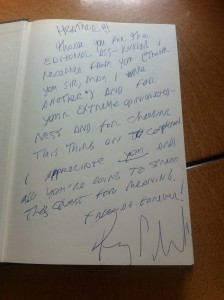 THANK YOU FOR THE
EDITORIAL ASS-KICKING I
RECEIVED FROM YOU (THANK
YOU SIR, MAY I HAVE
ANOTHER?) AND FOR
YOUR EXTREME OPINIONATED-
NESS AND FOR CHEERING
THIS THING ON TO COMPLETION.
I APPRECIATE YOU AND
ALL YOU'RE DOING TO SPREAD
THIS QUEST FOR MEANING.
FREEDOM FOREVER!